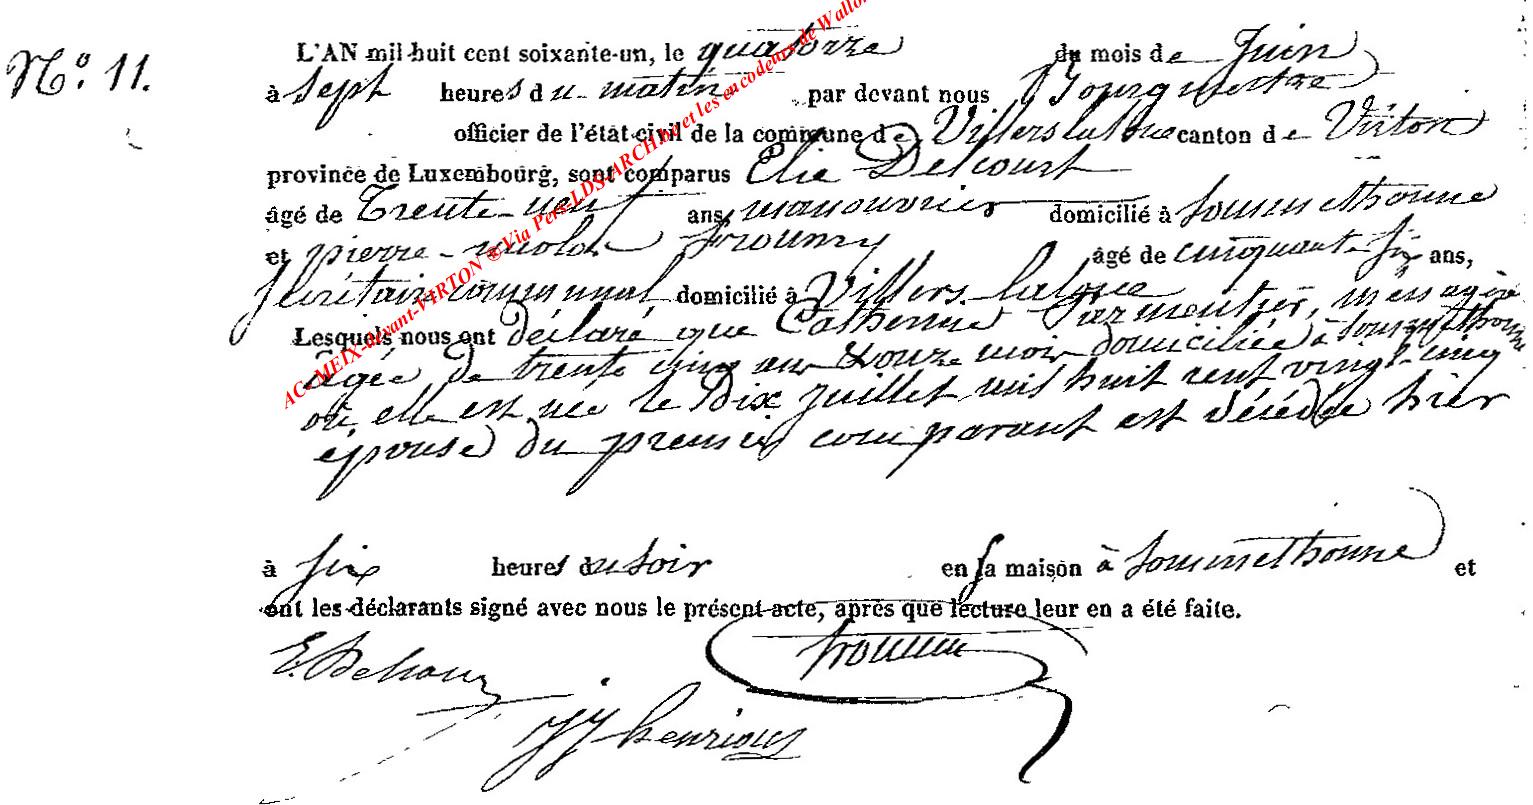 N.° 11.
L'AN mil huit cent soixante-un, le quatorze du mois de Juin
à sept heures du matin par devant nous Bourgmestre
officier de l'état-civil de la commune de Villers la loue canton de Virton
province de Luxembourg, sont comparus Elie Delcourt
âgé de Trente-neuf ans, manouvrier domicilié à Sommethonne
et pierre-nicolas froumy âgé de cinquante six ans,
secrétaire communal domicilié à Villers-laloue
Lesquels nous ont déclaré que Catherine Parmentier, ménagère
âgée de trente cinq ans onze mois domiciliée à Sommethonne
où elle est née le Dix juillet mil huit cent vingt-cinq
épouse du premier comparant est décédée hier
à six heures du soir en sa maison à Sommethonne et
ont les déclarants signé avec nous le présent acte, après que lecture leur en a été faite.
AC-MEIX-devant-VIRTON ® Via Pers-LDS-ARCH et les encodeurs de Wallo